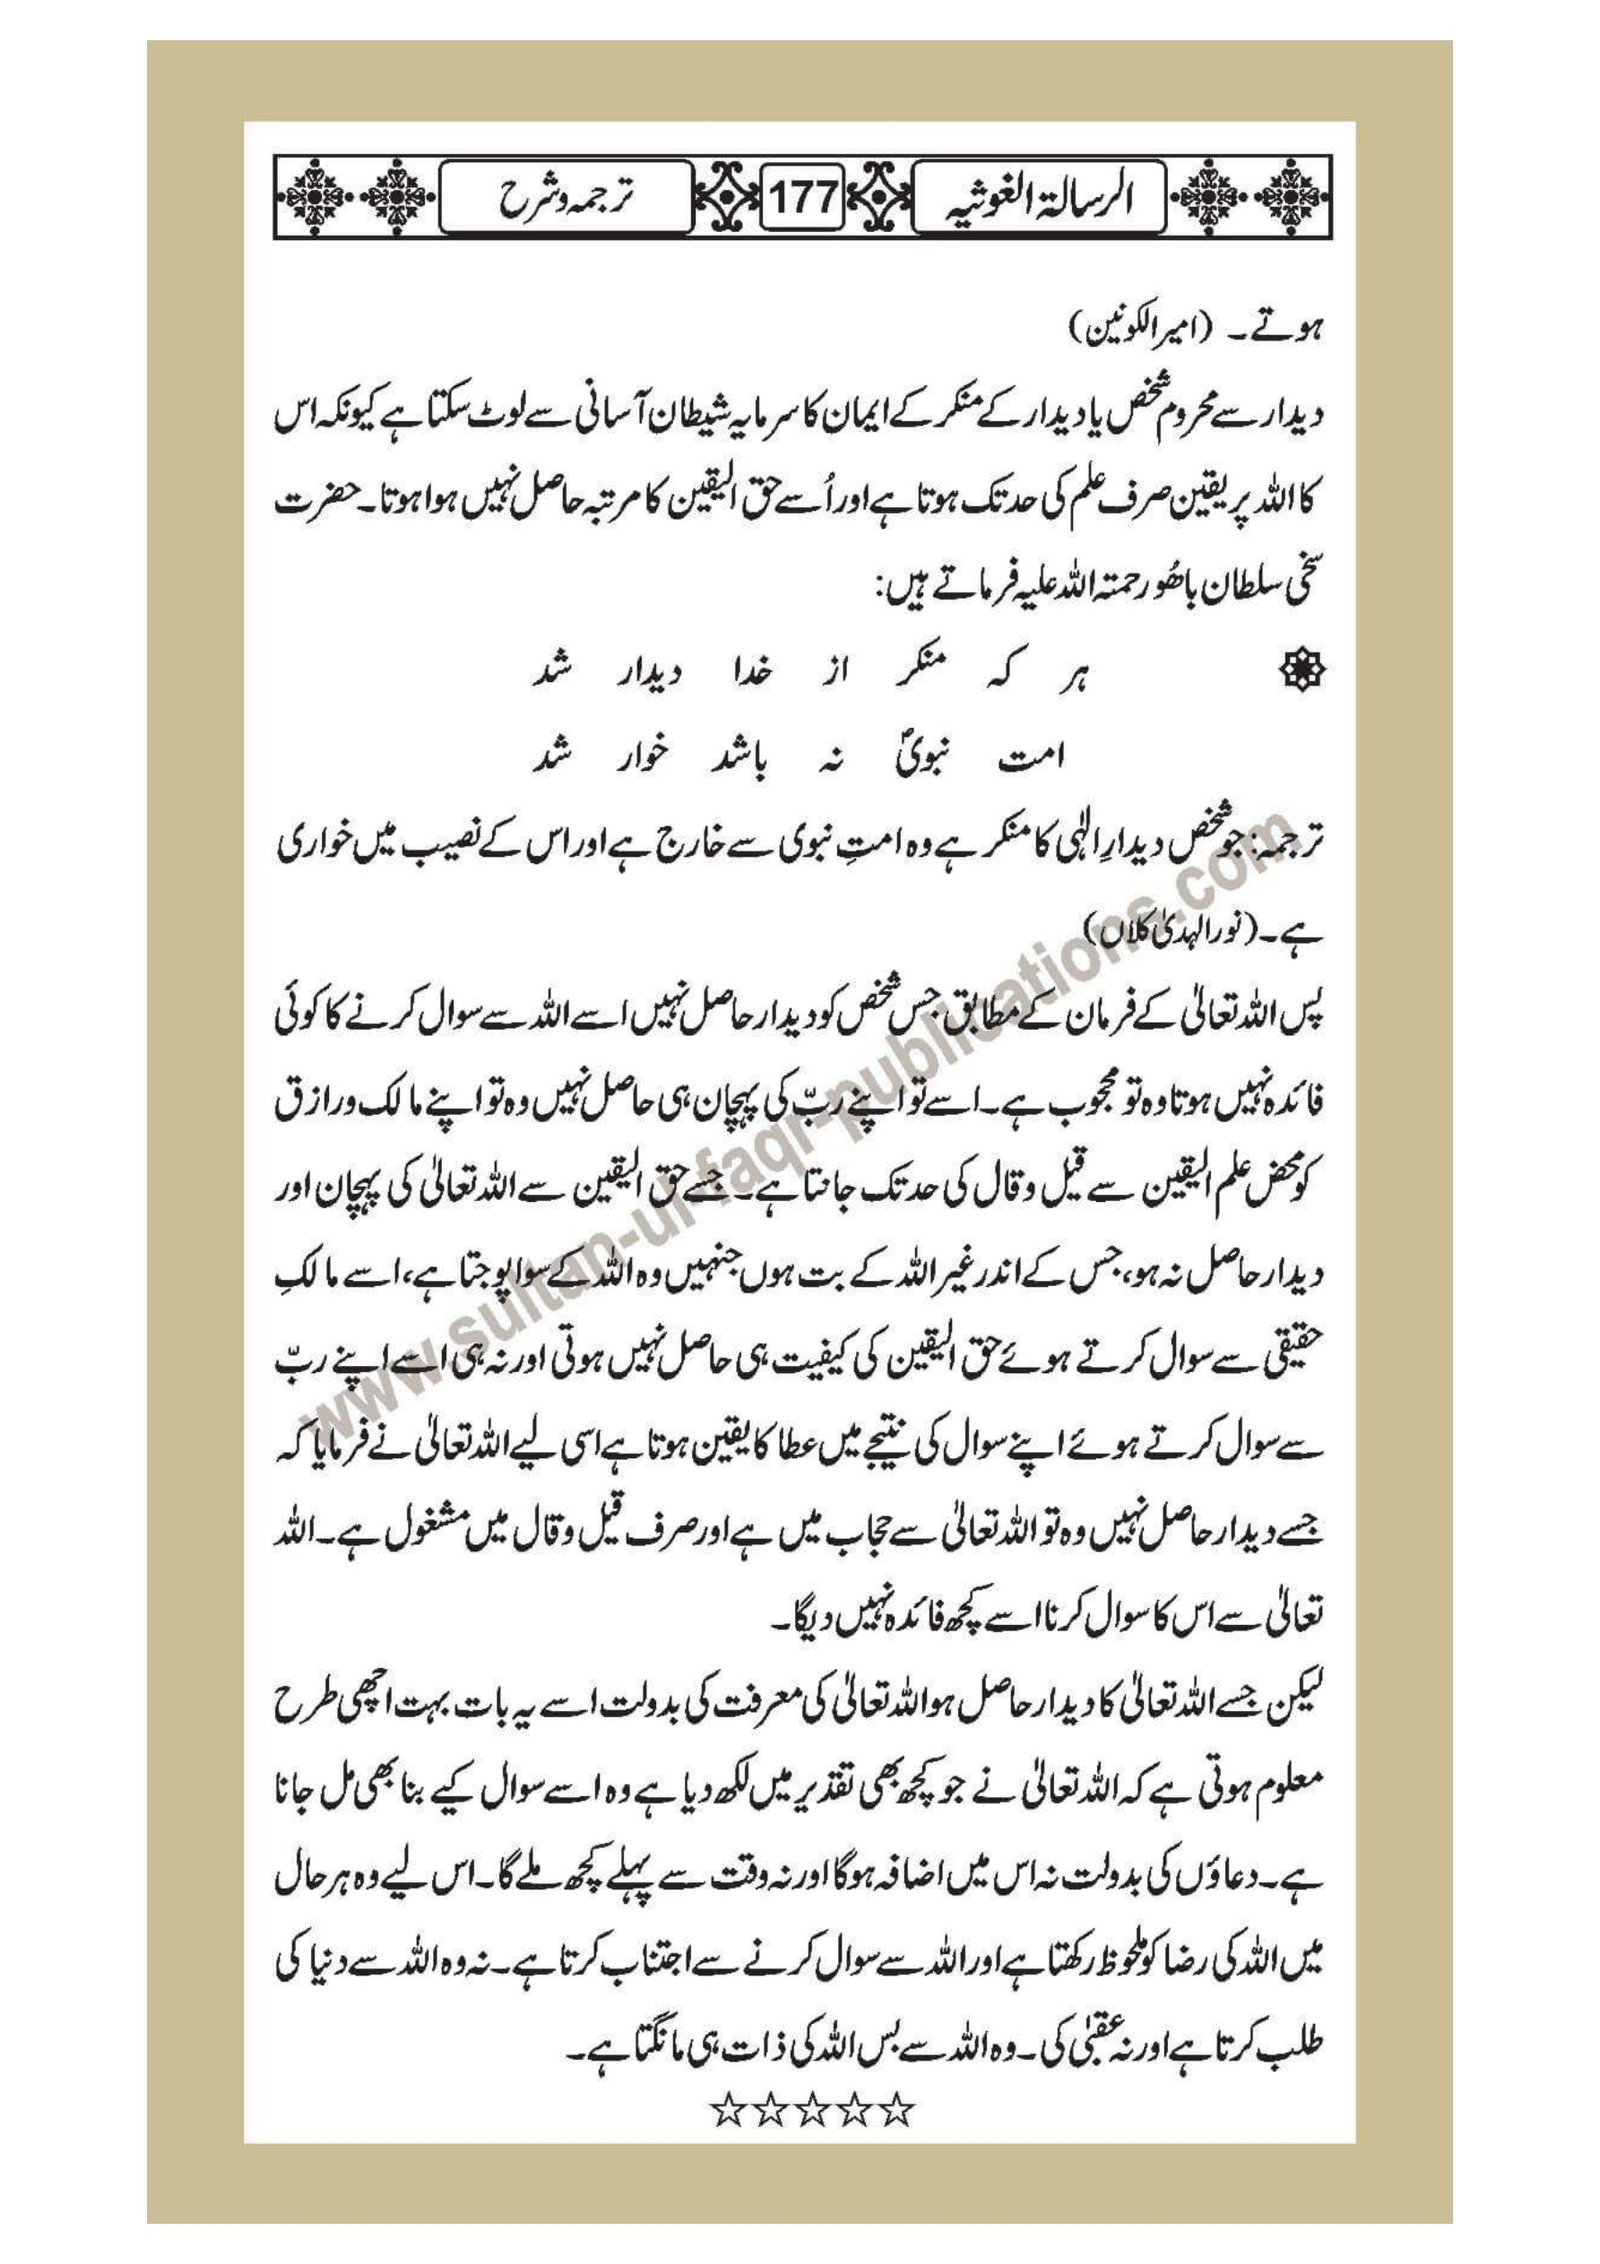 الرسالۃ الغوثیہ 177 ترجمہ و شرح
ہوتے۔ (امیر الکونین)
دیدار سے محروم شخص یا دیدار کے منکر کے ایمان کا سرمایہ شیطان آسانی سے لوٹ سکتا ہے کیونکہ اس
کا اللہ پر یقین صرف علم کی حد تک ہوتا ہے اور اُسے حق الیقین کا مرتبہ حاصل نہیں ہوا ہوتا۔ حضرت
سخی سلطان باھُو رحمتہ اللہ علیہ فرماتے ہیں:
ہر کہ منکر از خدا دیدار شد
امت نبویؐ نہ باشد خوار شد
ترجمہ: جو شخص دیدارِ الٰہی کا منکر ہے وہ امتِ نبوی سے خارج ہے اور اس کے نصیب میں خواری
ہے۔ (نور الہدیٰ کلاں)
پس اللہ تعالیٰ کے فرمان کے مطابق جس شخص کو دیدار حاصل نہیں اسے اللہ سے سوال کرنے کا کوئی
فائدہ نہیں ہوتا وہ تو محجوب ہے۔ اسے تو اپنے ربّ کی پہچان ہی حاصل نہیں وہ تو اپنے مالک و رازق
کو محض علم الیقین سے قیل و قال کی حد تک جانتا ہے۔ جسے حق الیقین سے اللہ تعالیٰ کی پہچان اور
دیدار حاصل نہ ہو، جس کے اندر غیر اللہ کے بت ہوں جنہیں وہ اللہ کے سوا پوجتا ہے، اسے مالکِ
حقیقی سے سوال کرتے ہوئے حق الیقین کی کیفیت ہی حاصل نہیں ہوتی اور نہ ہی اسے اپنے ربّ
سے سوال کرتے ہوئے اپنے سوال کی نتیجے میں عطا کا یقین ہوتا ہے اسی لیے اللہ تعالیٰ نے فرمایا کہ
جسے دیدار حاصل نہیں وہ تو اللہ تعالیٰ سے حجاب میں ہے اور صرف قیل و قال میں مشغول ہے۔ اللہ
تعالیٰ سے اس کا سوال کرنا اسے کچھ فائدہ نہیں دیگا۔
لیکن جسے اللہ تعالیٰ کا دیدار حاصل ہو اللہ تعالیٰ کی معرفت کی بدولت اسے یہ بات بہت اچھی طرح
معلوم ہوتی ہے کہ اللہ تعالیٰ نے جو کچھ بھی تقدیر میں لکھ دیا ہے وہ اسے سوال کیے بنا بھی مل جانا
ہے۔ دعاؤں کی بدولت نہ اس میں اضافہ ہوگا اور نہ وقت سے پہلے کچھ ملے گا۔ اس لیے وہ ہر حال
میں اللہ کی رضا کو ملحوظ رکھتا ہے اور اللہ سے سوال کرنے سے اجتناب کرتا ہے۔ نہ وہ اللہ سے دنیا کی
طلب کرتا ہے اور نہ عقبیٰ کی۔ وہ اللہ سے بس اللہ کی ذات ہی مانگتا ہے۔
☆☆☆☆☆
www.sultan-ul-faqr-publications.com